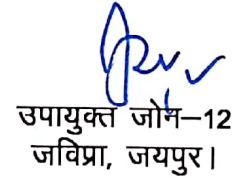 उपायुक्त जोन–12
जविप्रा, जयपुर।